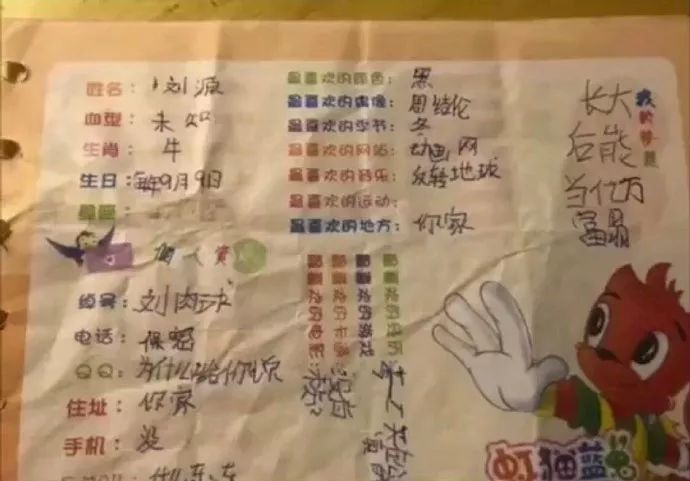 姓名：刘源
血型：未知
生肖：牛
生日：每年9月9日
星座：
个人资
绰号：刘肉球
电话：保密
QQ：为什么给你
住址：你家
手机：没
E-mail：什么东东
最喜欢的颜色：黑
最喜欢的偶像：周结伦
最喜欢的季节：冬
最喜欢的网站：动画网
最喜欢的音乐：反转地球
最喜欢的运动：
最喜欢的地方：你家
最喜欢的电影：
最喜欢的卡通：没有
最喜欢的游戏
最喜欢的
我的梦想
长大
后能
当亿万
富翁
虹猫蓝